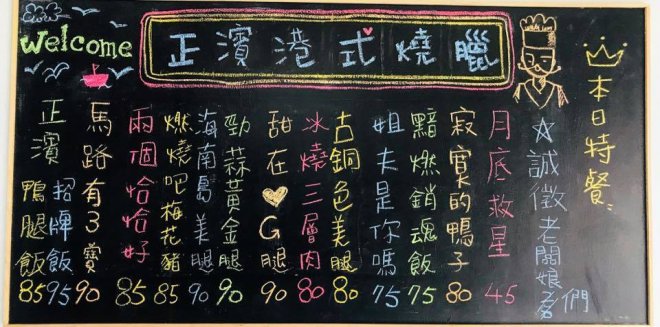 Welcome
正濱港式燒臘
本日特餐
☆誠徵老闆娘們
月底救星 45
寂寞的鴨子 80
黯燃銷魂飯 75
姐夫是你嗎 75
古銅色美腿 80
冰燒三層肉 80
甜在♡G腿 90
勁蒜黃金腿 90
海南島美腿 90
燃燒吧梅花豬 85
兩個恰恰好 85
馬路有3寶 90
正濱
招牌飯 95
鴨腿飯 85